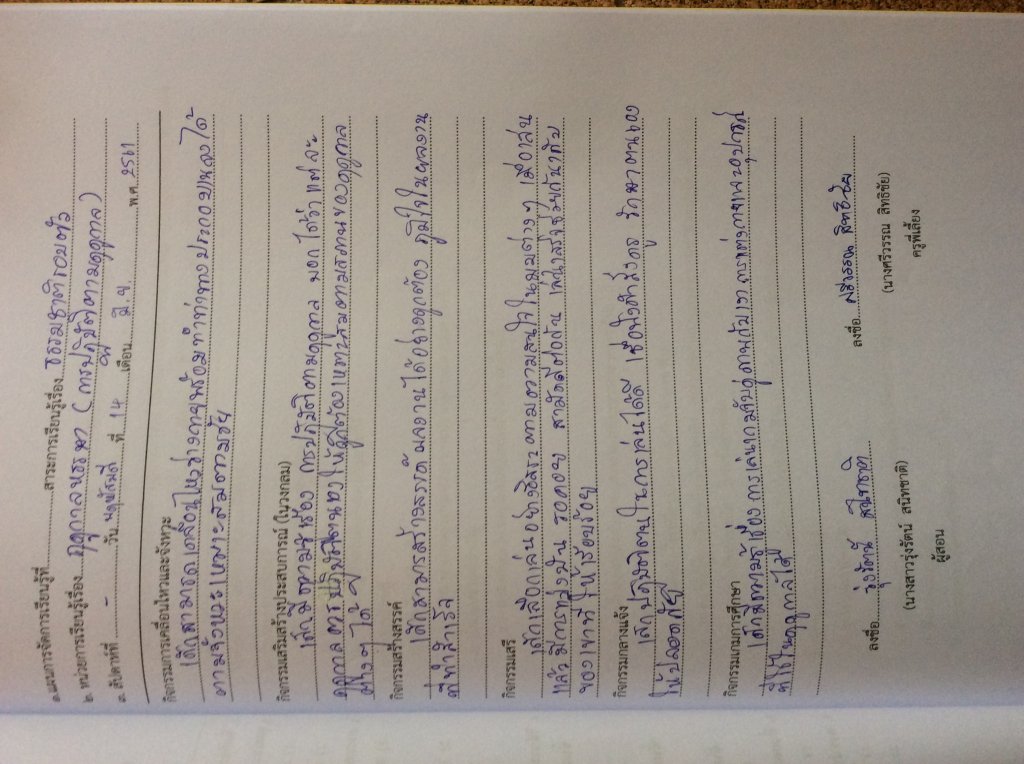 ๑.แผนการจัดการเรียนรู้ที่ สาระการเรียนรู้เรื่อง ธรรมชาติรอบตัว
๒. หน่วยการเรียนรู้เรื่อง ฤดูกาลหรรษา (การปฏิบัติตามฤดูกาล)
๓. สัปดาห์ที่ - วัน พฤหัสบดี ที่ 14 เดือน มิ.ย. พ.ศ. 2561
กิจกรรมการเคลื่อนไหวและจังหวะ
เด็กสามารถเคลื่อนไหวร่างกายพร้อมทำท่าทางประกอบเพลงได้
ตามจังหวะเหมาะสมตามวัย
กิจกรรมเสริมสร้างประสบการณ์ (ในวงกลม)
เด็กมีความรู้เรื่อง การปฏิบัติตามฤดูกาล บอกได้ว่าแต่ละ
ฤดูกาลควรปฏิบัติตนเองให้ถูกต้องเหมาะสมตามสถานของฤดูกาล
ต่างๆ ได้
กิจกรรมสร้างสรรค์
เด็กสามารถสร้างสรรค์ผลงานได้อย่างถูกต้อง ภูมิใจในผลงาน
ที่ทำสำเร็จ
กิจกรรมเสรี
เด็กเลือกเล่นอย่างอิสระตามความสนใจในมุมต่างๆ เมื่อเล่น
แล้วมีการแบ่งปัน รอคอย สามัคคีต่อกัน เล่นเสร็จช่วยกันเก็บ
ของเข้าที่ให้เรียบร้อย
กิจกรรมกลางแจ้ง
เด็กปฏิบัติตนในการเล่นได้ดี เชื่อฟังคำสั่งครู รักษาตนเอง
ให้ปลอดภัย
กิจกรรมเกมการศึกษา
เด็กมีความเข้าใจเรื่องการเล่นเกมจับคู่ภาพกับเงา การแต่งกายและอุปกรณ์
ที่ใช้ในฤดูกาลได้
ลงชื่อ รุ่งรัตน์ สนิทชาติ
(นางสาวรุ่งรัตน์ สนิทชาติ)
ผู้สอน
ลงชื่อ ศรีวรรณ สิทธิชัย
(นางศรีวรรณ สิทธิชัย)
ครูพี่เลี้ยง